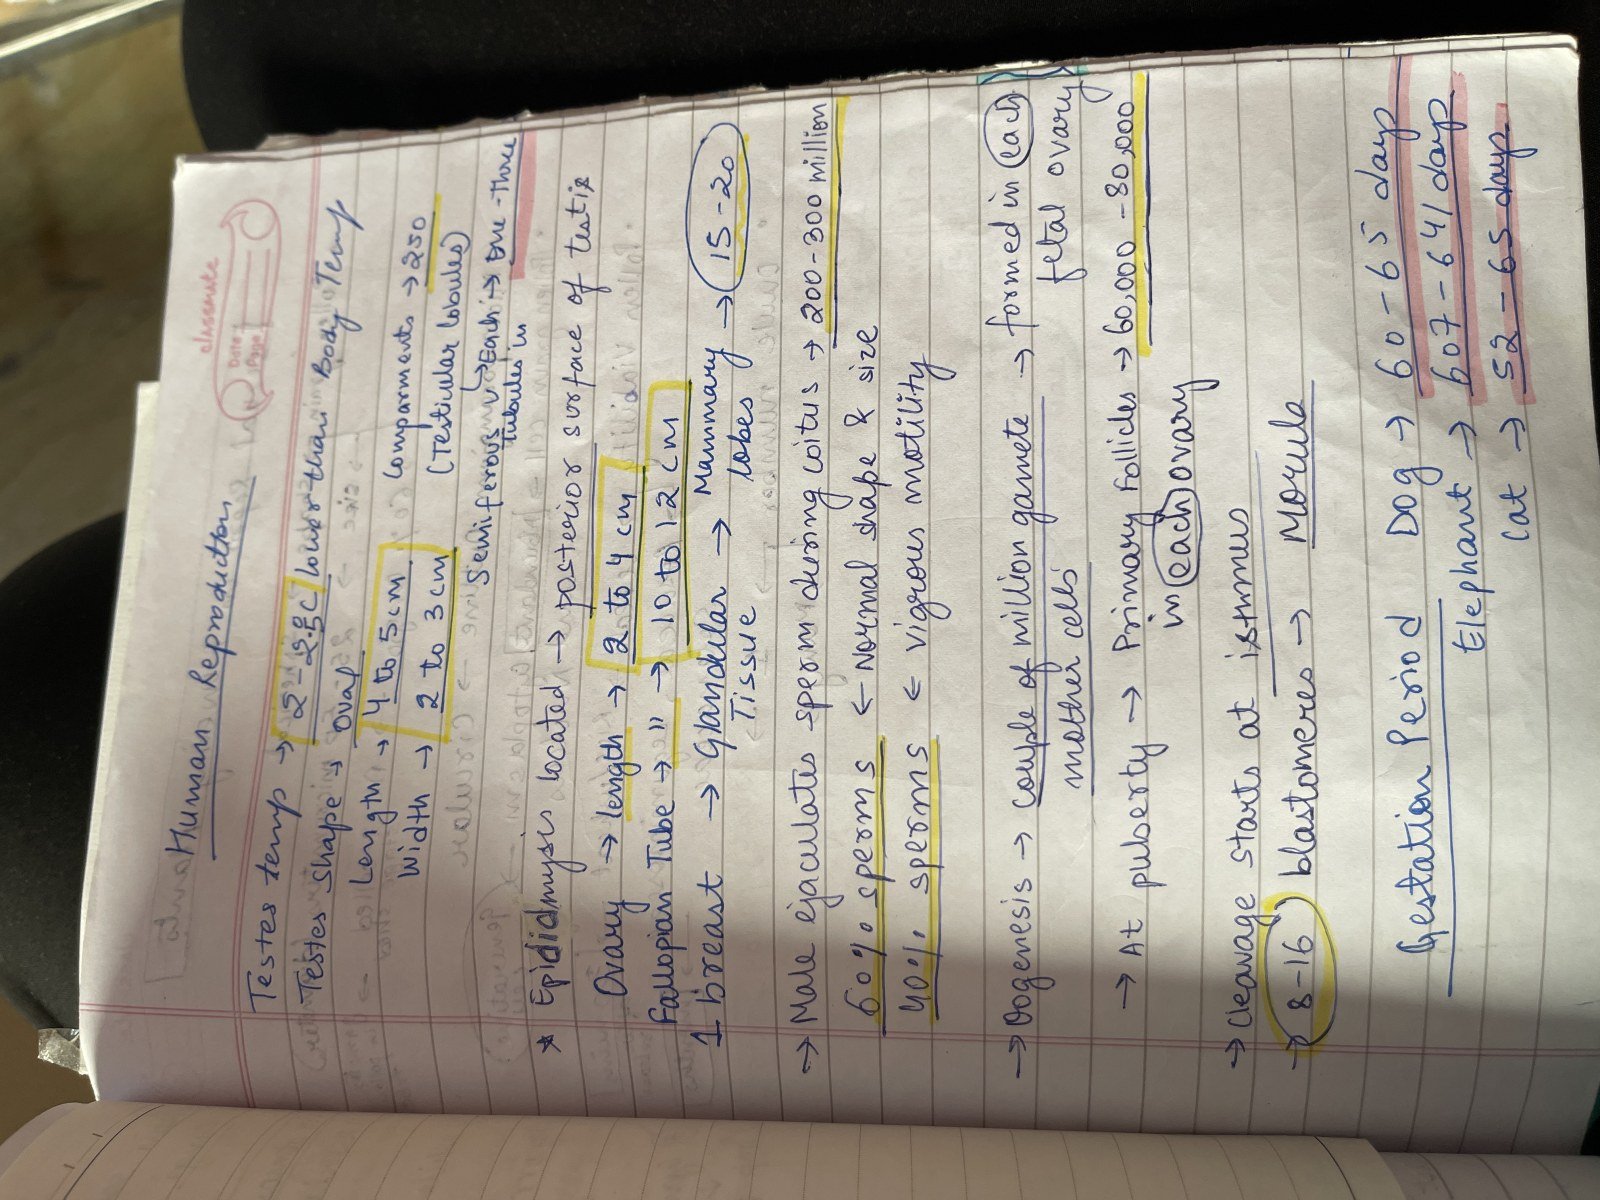 classmate
Date
Page
Human Reproduction
Testes temp → 2-2.5°C lower than Body Temp
Testes shape → Oval
Length → 4 to 5cm
Width → 2 to 3cm
Comparments → 250
(Testicular lobules)
Semiferous → Each → one-three
tubules in
* Epididmysis located → posterior surface of testis
Ovary → length → 2 to 4 cm
Fallopian Tube → " → 10 to 12 cm
1 breast → Glandular → Mammary → 15-20
Tissue lobes
→ Male ejaculates sperm during coitus → 200-300 million
60% sperms ← Normal shape & size
40% sperms ← vigrous motility
→ Oogenesis → couple of million gamete → formed in each
mother cells fetal ovary
→ At puberty → Primary follicles → 60,000-80,000
in each ovary
→ Cleavage starts at isthmus
→ 8-16 blastomeres → Morula
Gestation Period Dog → 60-65 days
Elephant → 607-641 days
Cat → 52-65 days